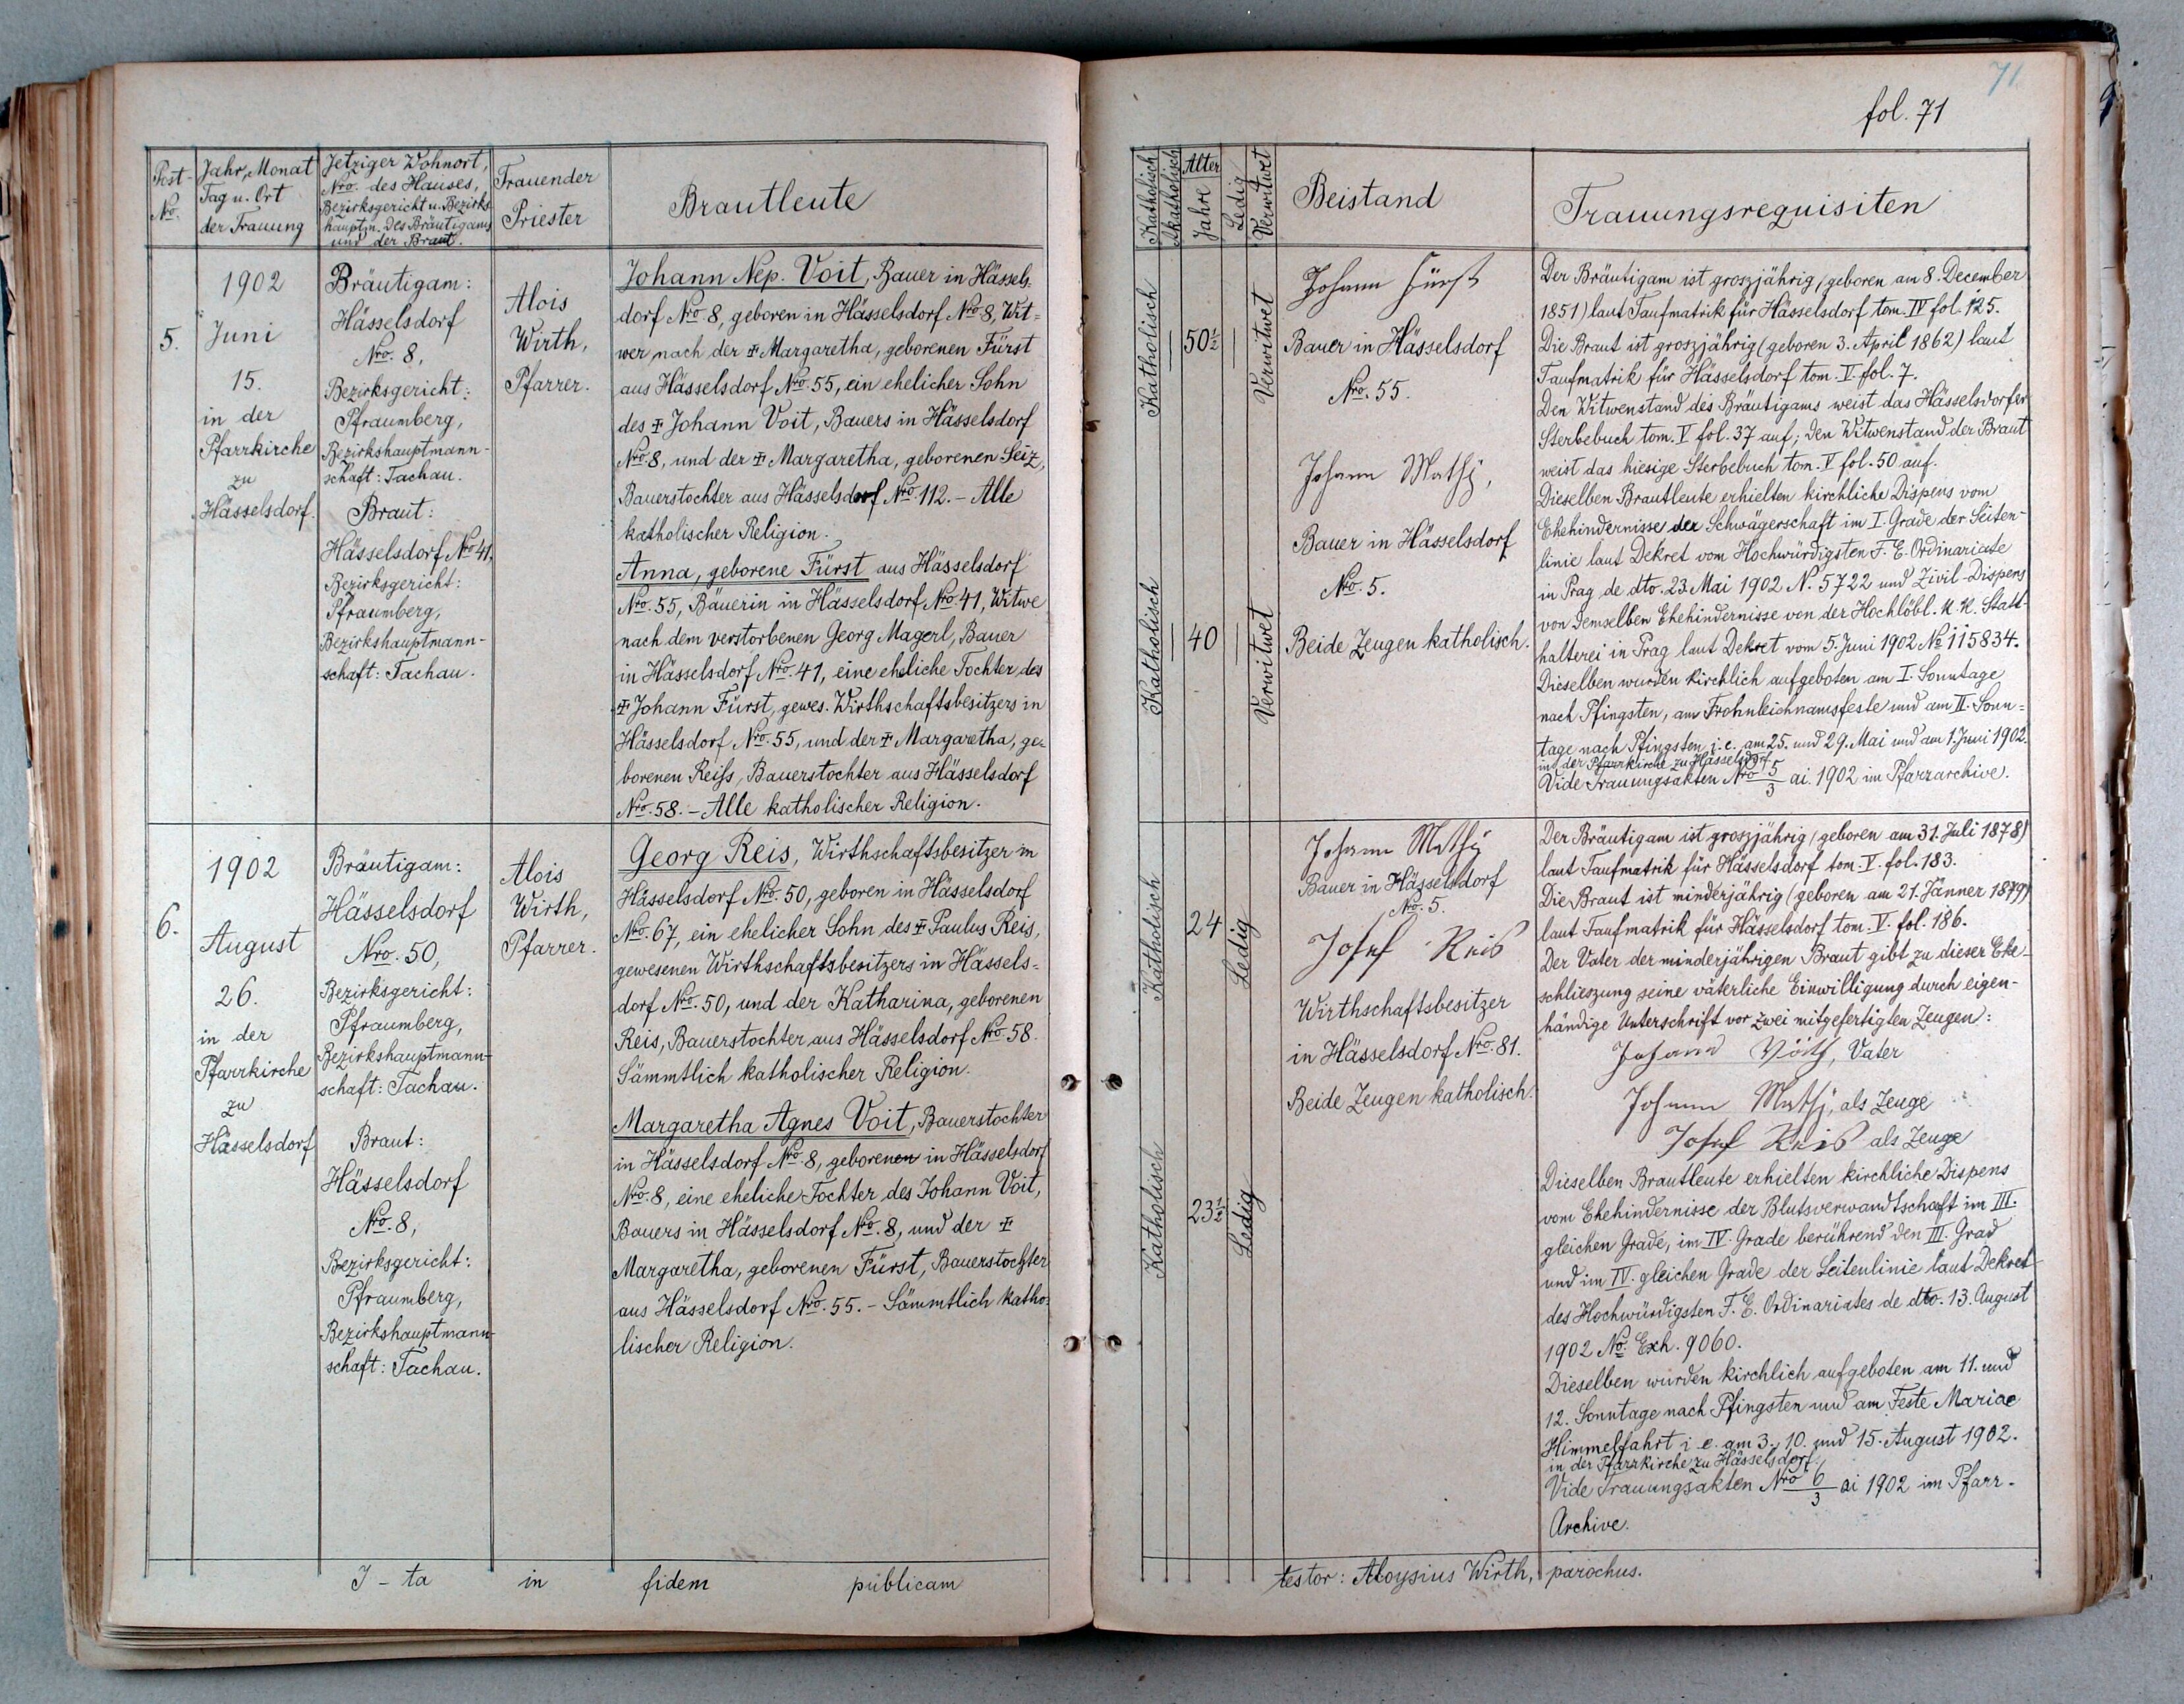 71.
fol. 71
Post-
Nro.
Jahr, Monat
Tag u. Ort
der Trauung
Jetziger Wohnort,
Nro. des Hauses,
Bezirksgericht u. Bezirks-
hauptm. des Bräutigams
und der Braut.
Trauender
Priester
Brautleute
5.
1902
Juni
15.
in der
Pfarrkirche
zu
Hässelsdorf.
Bräutigam:
Hässelsdorf
Nro. 8,
Bezirksgericht:
Pfraumberg,
Bezirkshauptmann-
schaft: Tachau.
Braut:
Hässelsdorf Nro 41,
Bezirksgericht:
Pfraumberg,
Bezirkshauptmann-
schaft: Tachau.
Alois
Wirth,
Pfarrer.
Johann Nep. Voit, Bauer in Hässels-
dorf Nro. 8, geboren in Hässelsdorf Nro. 8, Wit=
wer nach der ‡ Margaretha, geborenen Fürst
aus Hässelsdorf Nro. 55, ein ehelicher Sohn
des ‡ Johann Voit, Bauers in Hässelsdorf
Nro. 8, und der ‡ Margaretha, geborenen Seiz,
Bauerstochter aus Hässelsdorf Nro. 112. – Alle
katholischer Religion.
Anna, geborene Fürst aus Hässelsdorf
Nro. 55, Bäuerin in Hässelsdorf Nro. 41, Witwe
nach dem verstorbenen Georg Magerl, Bauer
in Hässelsdorf Nro. 41, eine eheliche Tochter des
‡ Johann Fürst, gewes. Wirthschaftsbesitzers in
Hässelsdorf Nro. 55, und der ‡ Margaretha, ge=
borenen Reiss, Bauerstochter aus Hässelsdorf
Nro. 58. – Alle katholischer Religion.
6.
1902
August
26.
in der
Pfarrkirche
zu
Hässelsdorf
Bräutigam:
Hässelsdorf
Nro. 50,
Bezirksgericht:
Pfraumberg,
Bezirkshauptmann-
schaft: Tachau.
Braut:
Hässelsdorf
Nro. 8,
Bezirksgericht:
Pfraumberg,
Bezirkshauptmann-
schaft: Tachau.
Alois
Wirth,
Pfarrer.
Georg Reis, Wirthschaftsbesitzer in
Hässelsdorf Nro. 50, geboren in Hässelsdorf
Nro. 67, ein ehelicher Sohn des ‡ Paulus Reis,
gewesenen Wirthschaftsbesitzers in Hässels=
dorf Nro. 50, und der Katharina, geborenen
Reis, Bauerstochter aus Hässelsdorf Nro. 58.
Sämmtlich katholischer Religion.
Margaretha Agnes Voit, Bauerstochter
in Hässelsdorf Nro. 8, geborenen in Hässelsdorf
Nro. 8, eine eheliche Tochter des Johann Voit,
Bauers in Hässelsdorf Nro. 8, und der ‡
Margaretha, geborenen Fürst, Bauerstochter
aus Hässelsdorf Nro. 55. – Sämmtlich katho=
lischer Religion.
I – ta in fidem publicam
Katholisch
Akatholisch
Alter
Jahre
Ledig
Verwitwet
Beistand
Trauungsrequisiten
Katholisch
50½
Verwitwet
Katholisch
40
Verwitwet
Johann Fürst
Bauer in Hässelsdorf
Nro. 55.
Johann Mathÿ,
Bauer in Hässelsdorf
Nro. 5.
Beide Zeugen katholisch.
Der Bräutigam ist groszjährig (geboren am 8. December
1851) laut Taufmatrik für Hässelsdorf tom. IV fol. 125.
Die Braut ist groszjährig (geboren 3. April 1862) laut
Taufmatrik für Hässelsdorf tom. V. fol. 7.
Den Witwenstand des Bräutigams weist das Hässelsdorfer
Sterbebuch tom. V fol. 37 auf; den Witwenstand der Braut
weist das hiesige Sterbebuch tom. V fol. 50 auf.
Dieselben Brautleute erhielten kirchliche Dispens vom
Ehehindernisse der Schwägerschaft im I. Grade der Seiten-
linie laut Dekret vom Hochwürdigsten F. E. Ordinariate
in Prag de dto. 23. Mai 1902 N. 5722 und Zivil-Dispens
von demselben Ehehindernisse von der Hochlöbl. K. K. Statt-
halterei in Prag laut Dekret vom 5. Juni 1902 No 115834.
Dieselben wurden kirchlich aufgeboten am I. Sonntage
nach Pfingsten, am Frohnleichnamsfeste und am II. Sonn=
tage nach Pfingsten i. e. am 25. und 29. Mai und am 1. Juni 1902.
in der Pfarrkirche zu Hässelsdorf
Vide Trauungsakten Nro 5/3 ai. 1902 im Pfarrarchive.
Katholisch
24
Ledig
Katholisch
23½
Ledig
Johann Mathÿ
Bauer in Hässelsdorf
Nro. 5.
Josef Reis
Wirthschaftsbesitzer
in Hässelsdorf Nro. 81.
Beide Zeugen katholisch.
Der Bräutigam ist groszjährig (geboren am 31. Juli 1878)
laut Taufmatrik für Hässelsdorf tom. V. fol. 183.
Die Braut ist minderjährig (geboren am 21. Jänner 1879)
laut Taufmatrik für Hässelsdorf tom. V. fol. 186.
Der Vater der minderjährigen Braut gibt zu dieser Ehe-
schlieszung seine väterliche Einwilligung durch eigen-
händige Unterschrift vor zwei mitgefertigten Zeugen:
Johann Vöith, Vater
Johann Mathÿ, als Zeuge
Josef Reis als Zeuge
Dieselben Brautleute erhielten kirchliche Dispens
vom Ehehindernisse der Blutsverwandtschaft im III.
gleichen Grade, im IV. Grade berührend den III. Grad
und im IV. gleichen Grade der Seitenlinie laut Dekret
des Hochwürdigsten F. E. Ordinariates de dto. 13. August
1902 No. Exh. 9060.
Dieselben wurden kirchlich aufgeboten am 11. und
12. Sonntage nach Pfingsten und am Feste Mariae
Himmelfahrt i. e. am 3. 10. und 15. August 1902.
in der Pfarrkirche zu Hässelsdorf.
Vide Trauungsakten Nro 6/3 ai 1902 im Pfarr-
Archive.
testor: Aloysius Wirth, parochus.